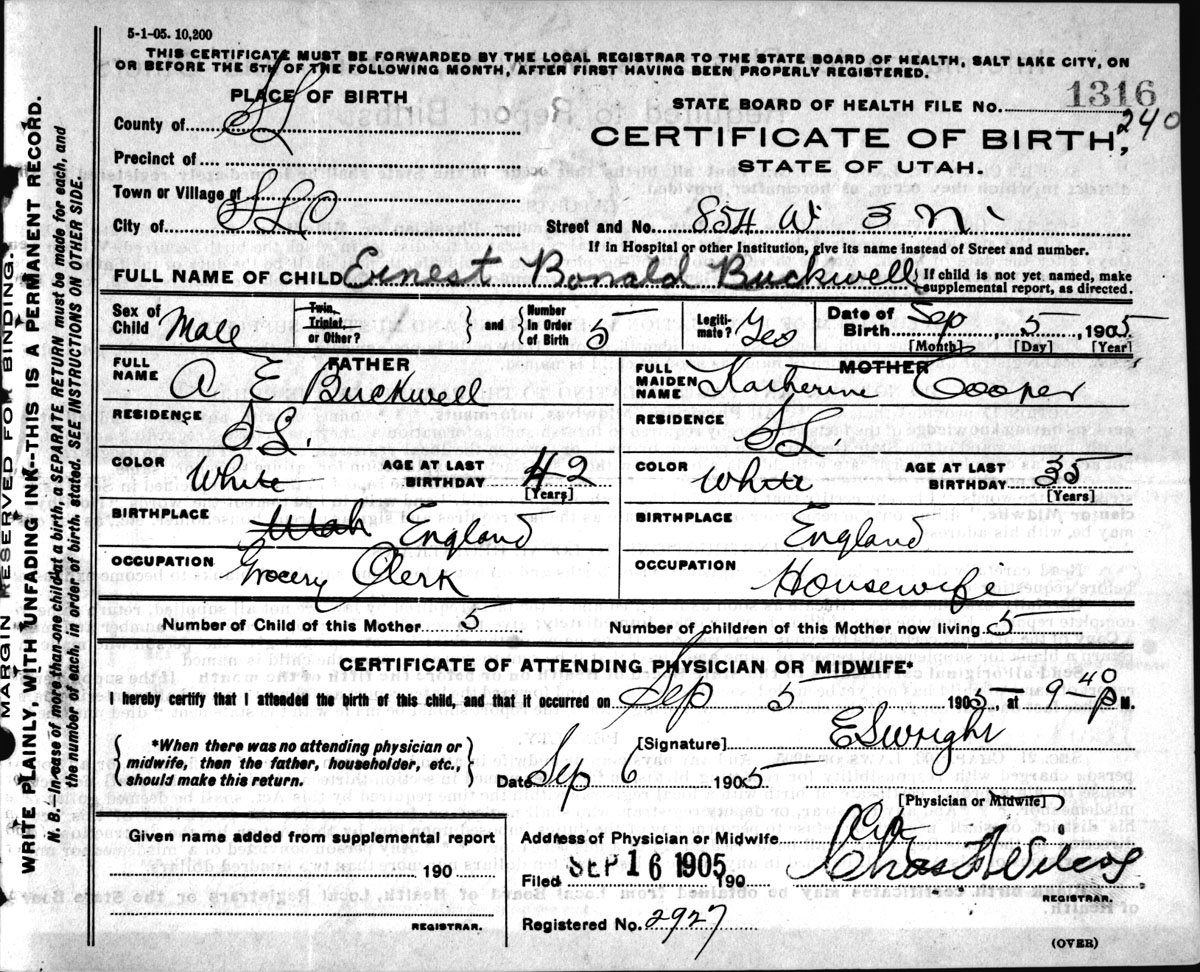 5-1-05. 10,200
THIS CERTIFICATE MUST BE FORWARDED BY THE LOCAL REGISTRAR TO THE STATE BOARD OF HEALTH, SALT LAKE CITY, ON
OR BEFORE THE 5TH OF THE FOLLOWING MONTH, AFTER FIRST HAVING BEEN PROPERLY REGISTERED.
PLACE OF BIRTH
STATE BOARD OF HEALTH FILE NO. 1316
240
County of SL
CERTIFICATE OF BIRTH,
STATE OF UTAH.
Precinct of
Town or Village of
City of SLC
Street and No. 854 W 3 N
If in Hospital or other Institution, give its name instead of Street and number.
FULL NAME OF CHILD Ernest Ronald Buckwell { If child is not yet named, make supplemental report, as directed.
Sex of Child Male Twin, Triplet, or Other? } and { Number in Order of Birth 5 Legitimate? Yes Date of Birth Sep 5, 1905
[Month] [Day] [Year]
FATHER
MOTHER
FULL NAME A E Buckwell
FULL MAIDEN NAME Katherine Cooper
RESIDENCE SL.
RESIDENCE SL.
COLOR White AGE AT LAST BIRTHDAY 42 [Years]
COLOR White AGE AT LAST BIRTHDAY 35 [Years]
BIRTHPLACE Utah England
BIRTHPLACE England
OCCUPATION Grocery Clerk
OCCUPATION Housewife
Number of Child of this Mother 5
Number of children of this Mother now living 5
CERTIFICATE OF ATTENDING PHYSICIAN OR MIDWIFE*
I hereby certify that I attended the birth of this child, and that it occurred on Sep 5 1905, at 9 40 P M.
{ *When there was no attending physician or midwife, then the father, householder, etc., should make this return. }
[Signature] E S Wright
Date Sep 6 1905
[Physician or Midwife]
Given name added from supplemental report
190
REGISTRAR.
Address of Physician or Midwife City
Filed SEP 16 1905 190
REGISTRAR.
Registered No. 2927
(OVER)
MARGIN RESERVED FOR BINDING.
WRITE PLAINLY, WITH UNFADING INK--THIS IS A PERMANENT RECORD.
N. B.--In case of more than one child at a birth, a SEPARATE RETURN must be made for each, and
the number of each, in order of birth stated. SEE INSTRUCTIONS ON OTHER SIDE.